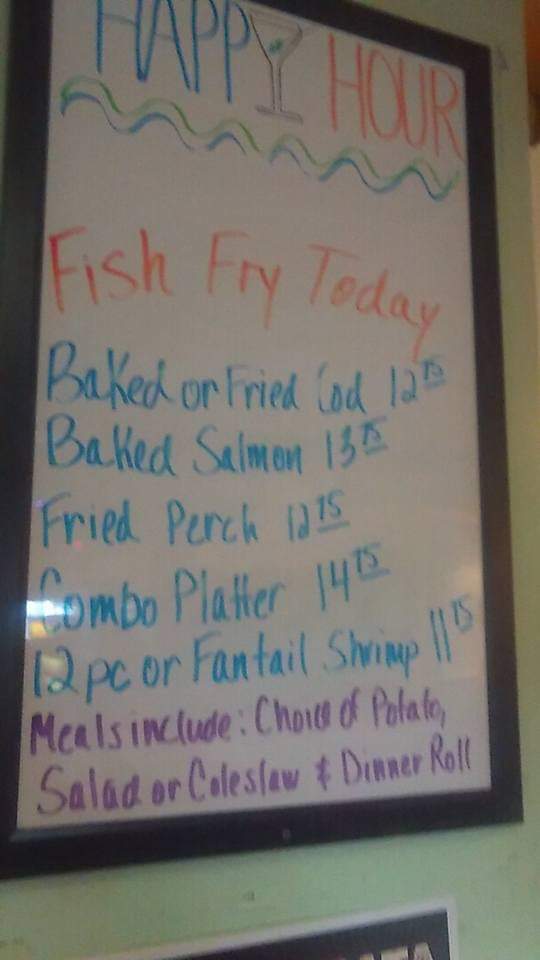 HAPPY HOUR
Fish Fry Today
Baked or Fried Cod 12 75
Baked Salmon 13 75
Fried Perch 12 75
Combo Platter 14 75
12 pc or Fantail Shrimp 11 75
Meals include: Choice of Potato,
Salad or Coleslaw & Dinner Roll